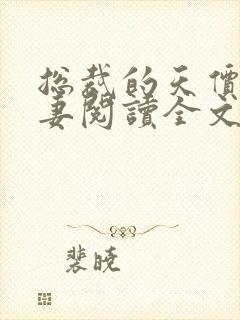 总裁的天價
妻閱讀全文
裴晓